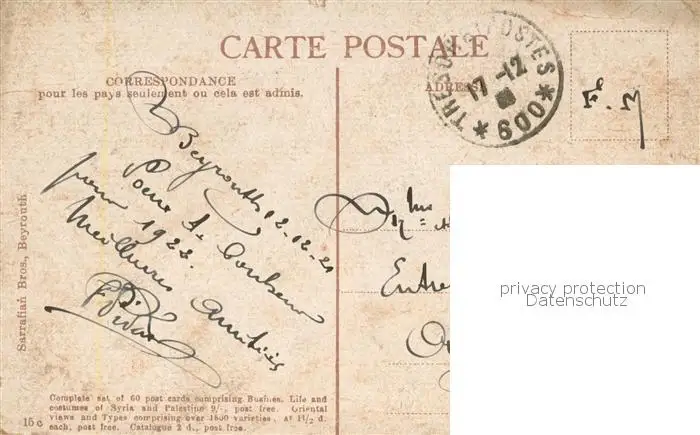 CARTE POSTALE
CORRESPONDANCE
pour les pays seulement ou cela est admis.
ADRESSE
TRESOR ET POSTES
17-12
* 600 *
F. M
Beyrouth 12-12-21
Pour le bonheur
pour 1922.
Meilleures Amitiés
Entre
privacy protection
Datenschutz
Sarrafian Bros., Beyrouth
Complete set of 60 post cards comprising Busines. Life and
costumes of Syria and Palestine 9/-, post free. Oriental
views and Types comprising over 1500 varieties. At 1 1/2 d.
each, post free. Catalogue 2 d., post free.
15 c